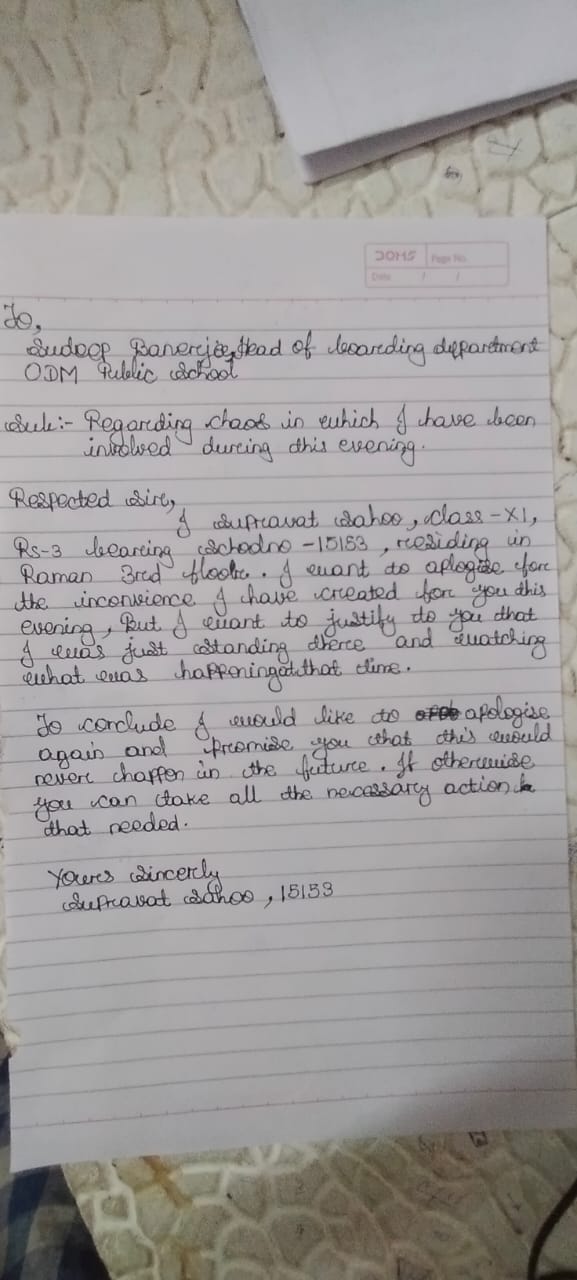 DOMS Page No.
Date / /
To,
Sudeep Banerjee, Head of boarding deppartment
ODM Public School
Sub:- Regarding chaos in which I have been
involved during this evening.
Respected Sir,
I Supravat Sahoo, class-XI,
RS-3 bearing Schoolno-15153, residing in
Raman 3rd floor. I want to aplogise for
the inconvience I have created for you this
evening, But I want to justify to you that
I was just standing there and watching
what was happening at that time.
To conclude I would like to apologise
again and promise you that this would
never happen in the future. If otherwise
you can take all the necessary action
that needed.
Yours Sincerly
Supravat Sahoo, 15153